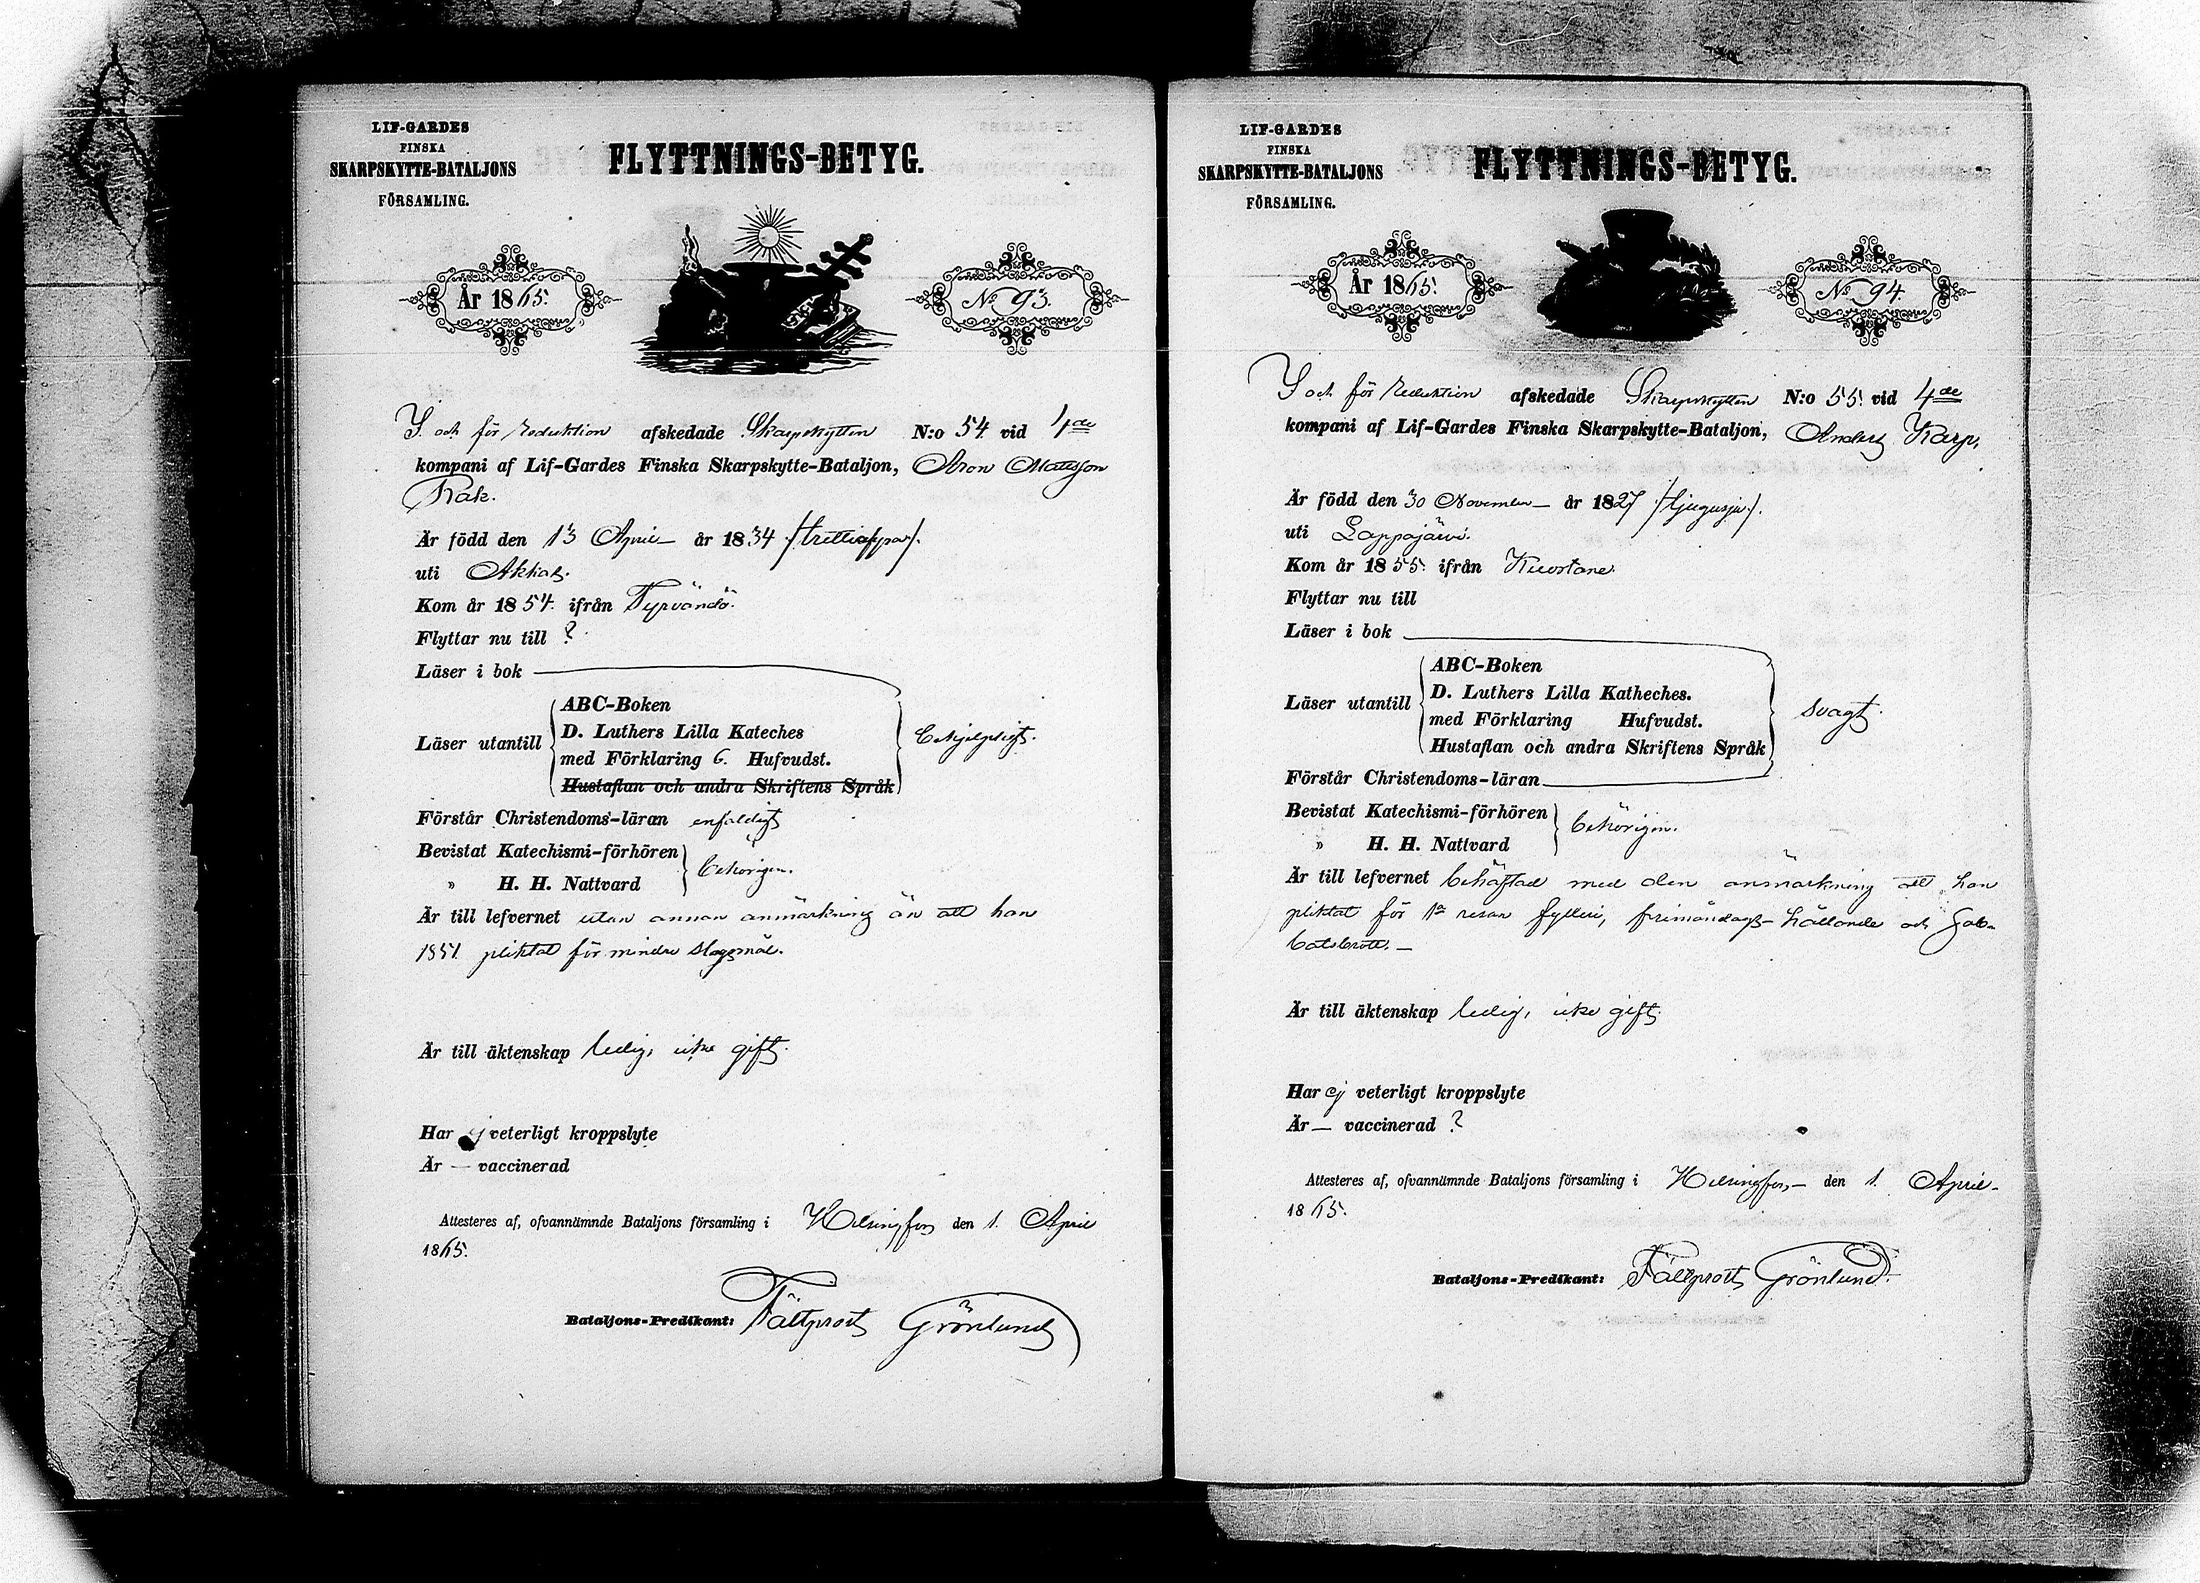 LIF-GARDES
FINSKA
SKARPSKYTTE-BATALJONS
FÖRSAMLING.
FLYTTNINGS-BETYG.
År 1865.
No 93.
och för reduktion afskedade Skarpskytten N:o 54 vid 4de
kompani af Lif-Gardes Finska Skarpskytte-Bataljon, Aron Mattsson
Rak.
Är född den 13 April år 1834 /trettiofyra/.
uti Akkas.
Kom år 1854. ifrån Tyrvändö.
Flyttar nu till ?
Läser i bok
Läser utantill
ABC-Boken
D. Luthers Lilla Kateches
med Förklaring 6. Hufvudst.
Hustaflan och andra Skriftens Språk
behjelpligt.
Förstår Christendoms-läran enfaldigt
Bevistat Katechismi-förhören
» H. H. Nattvard
behörigen.
Är till lefvernet utan annan anmärkning än att han
pliktat för mindre slagsmål.
Är till äktenskap ledig, icke gift.
Har ej veterligt kroppslyte
Är — vaccinerad
Attesteras af, ofvannämnde Bataljons församling i Helsingfors den 1. April
1865.
Bataljons-Predikant: Fältprost Grönlund
LIF-GARDES
FINSKA
SKARPSKYTTE-BATALJONS
FÖRSAMLING.
FLYTTNINGS-BETYG.
År 1865.
No 94.
och för reduktion afskedade Skarpskytten N:o 55 vid 4de
kompani af Lif-Gardes Finska Skarpskytte-Bataljon, Anders Karp,
Är född den 30 November år 1827 /tjugusju/.
uti Lappajärvi.
Kom år 1855. ifrån Kuortane
Flyttar nu till
Läser i bok
Läser utantill
ABC-Boken
D. Luthers Lilla Katheches.
med Förklaring Hufvudst.
Hustaflan och andra Skriftens Språk
svagt.
Förstår Christendoms-läran
Bevistat Katechismi-förhören
» H. H. Nattvard
behörigen.
Är till lefvernet behäftad med den anmärkning att han
pliktat för 1a resan fylleri, frimåndags-hållande och sab-
batsbrott. —
Är till äktenskap ledig, icke gift.
Har ej veterligt kroppslyte
Är — vaccinerad ?
Attesteras af, ofvannämnde Bataljons församling i Helsingfors, — den 1. April —
1865.
Bataljons-Predikant: Fältprost Grönlund.